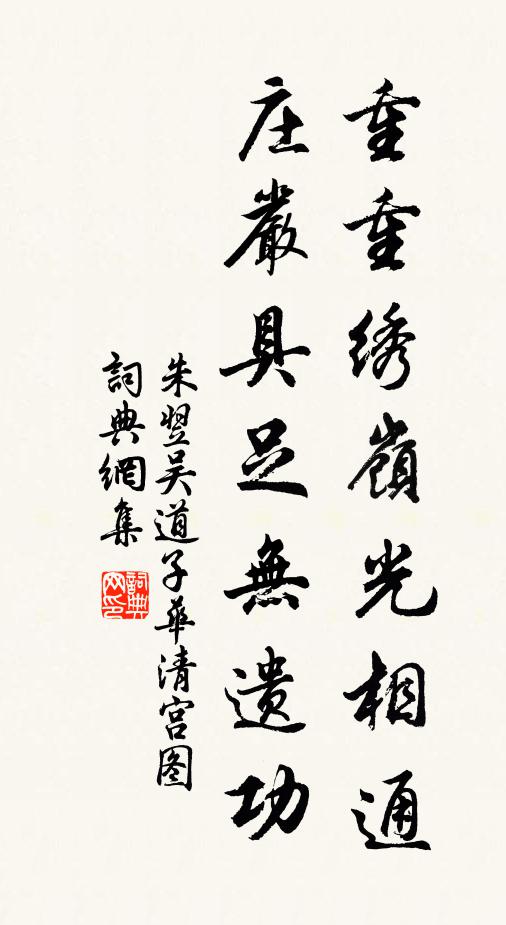 重重绣嶺光相通
庄嚴具足無遗功
朱翌吴道子華清宫图
詞典網集
詞典网印